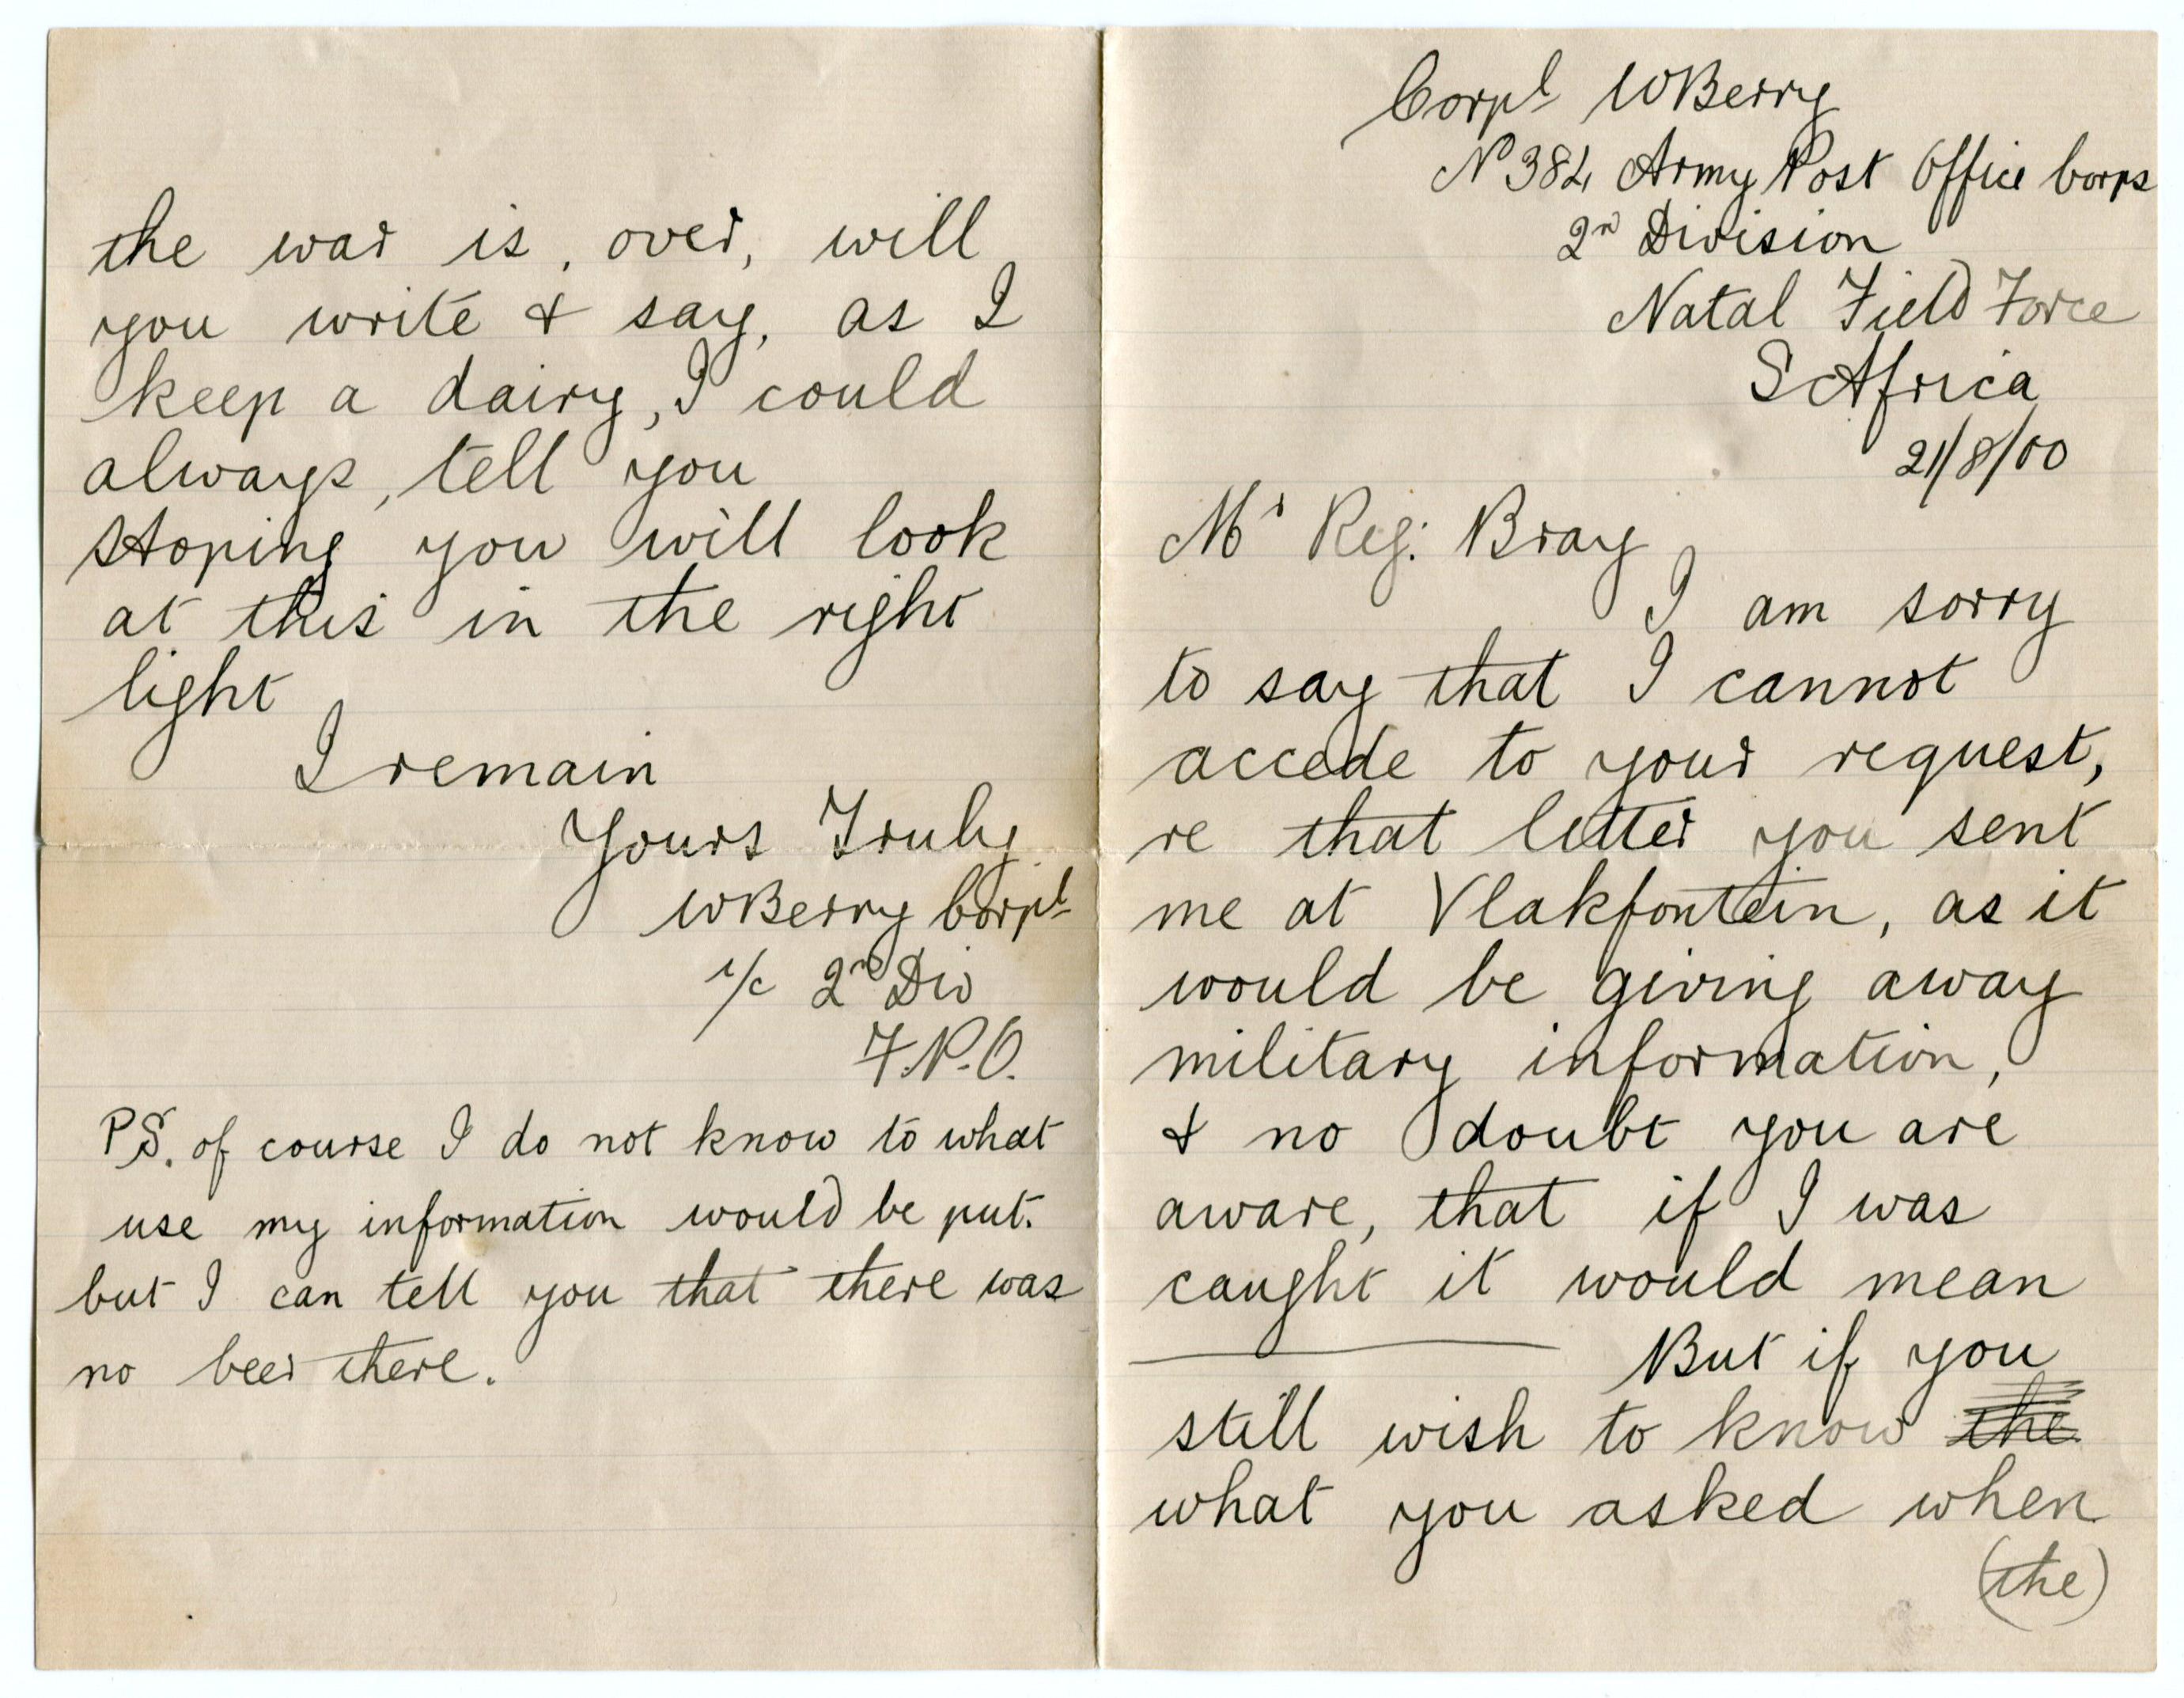 Corpl WBerry
No 384 Army Post Office Corps
2n Division
Natal Field Force
S Africa
21/8/00
Mr Reg: Bray
I am sorry
to say that I cannot
accede to your request,
re that letter you sent
me at Vlakfontein, as it
would be giving away
military information,
& no doubt you are
aware, that if I was
caught it would mean
But if you
still wish to know the
what you asked when
(the)
the war is, over, will
you write & say, as I
keep a dairy, I could
always, tell you
stoping you will look
at this in the right
light
I remain
Yours Truly
WBerry Corpl
i/c 2n Div
F.P.O.
PS. of course I do not know to what
use my information would be put.
but I can tell you that there was
no beer there.